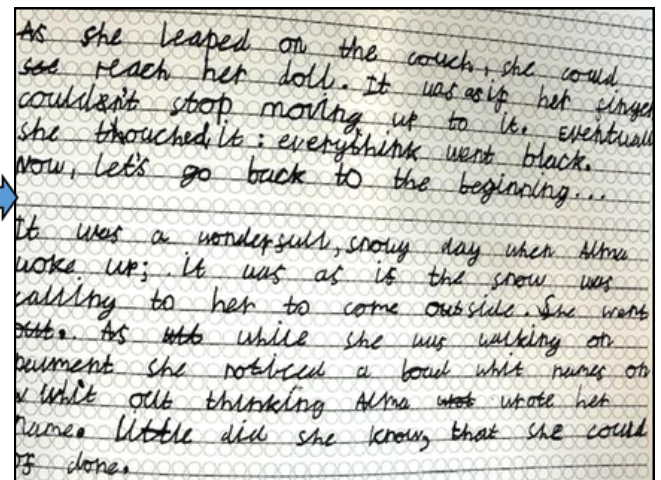 As she leaped on the couch, she could
reach her doll. It was as if her finger
couldsn't stop moving up to it. Eventuall
she thouched it: everythink went black.
Now, let's go back to the beginning...
It was a wonderfull, snowy day when Alma
woke up; it was as if the snow was
calling to her to come outside. She went
out. As while she was walking on
pavment she noticed a boad whit names on
whit out thinking Alma wrote her
name. Little did she know, that she could
of done.